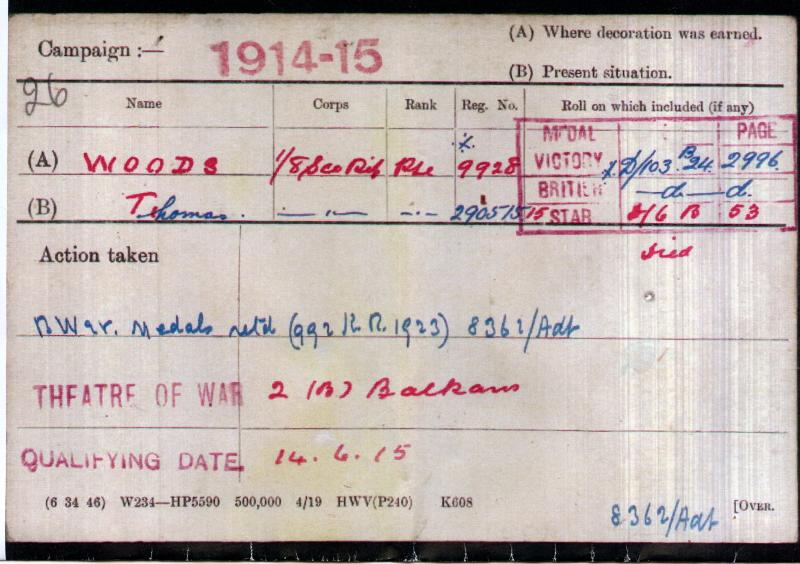 Campaign :— 1914-15 (A) Where decoration was earned.
(B) Present situation.
26
Name Corps Rank Reg. No. Roll on which included (if any)
MEDAL PAGE
(A) WOODS 1/8 Sco Rif Pte 9928 VICTORY D/103 B24 2996
(B) Thomas. — " — — " — 290515 BRITISH — do — do.
15 STAR D/6 B 53
Action taken died
B War. Medals retd (992 K.R. 1923) 8362/Adt
THEATRE OF WAR 2 (B) Balkans
QUALIFYING DATE 14. 6. 15
(6 34 46) W234—HP5590 500,000 4/19 HWV(P240) K608
8362/Adt [OVER.